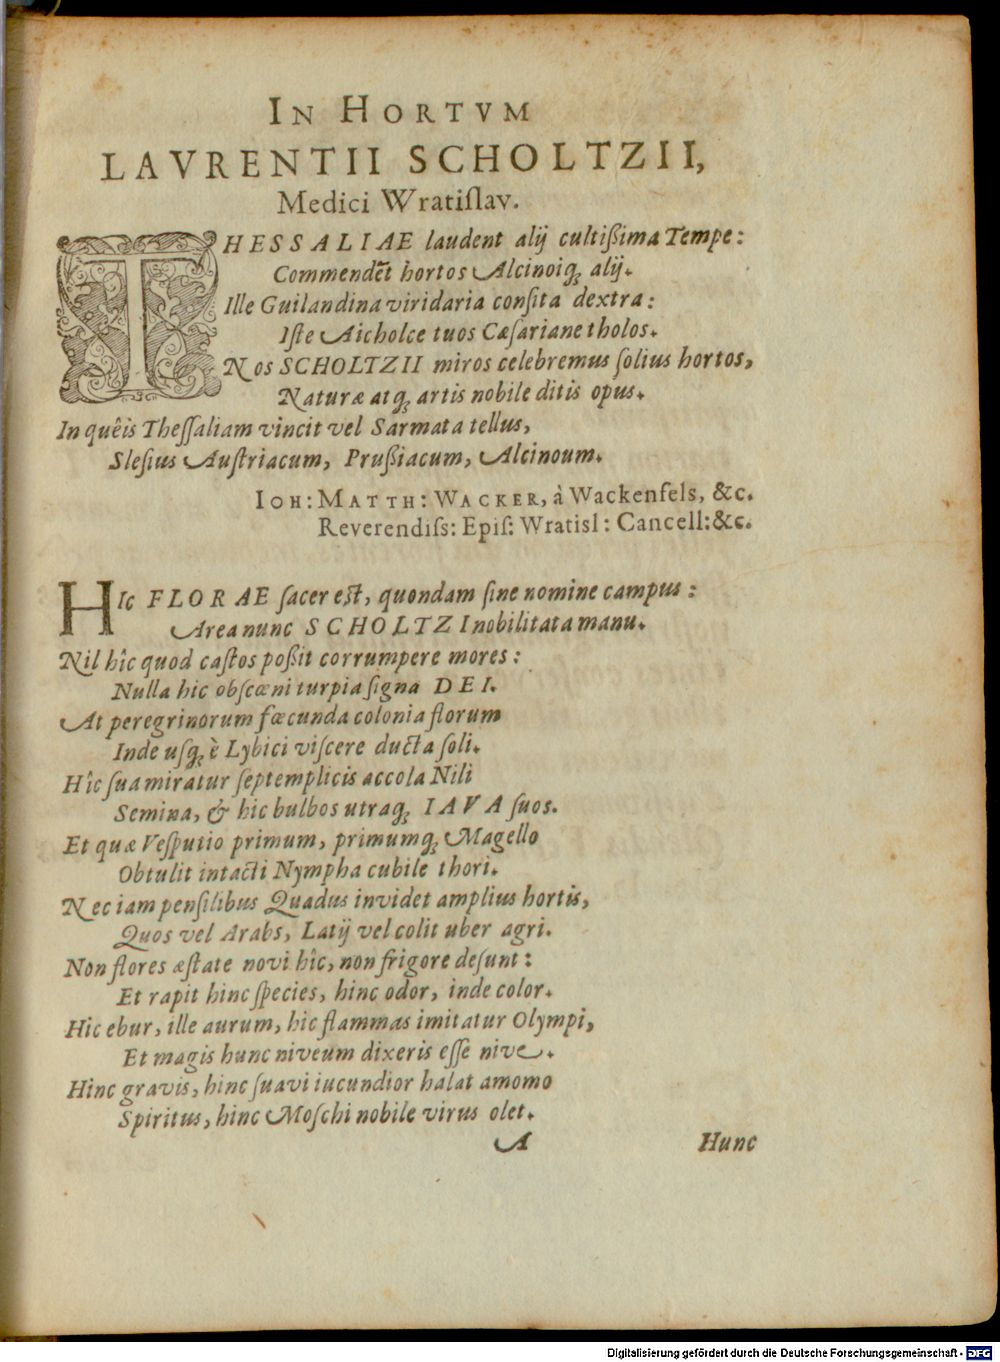 IN HORTVM
LAVRENTII SCHOLTZII,
Medici Wratiſlav.
THESSALIAE laudent alij cultißima Tempe:
Commendēt hortos Alcinoiq; alij.
Ille Guilandina viridaria conſita dextra:
Iſte Aicholce tuos Cæſariane tholos.
Nos SCHOLTZII miros celebremus ſolius hortos,
Naturæ atq; artis nobile ditis opus.
In quêis Theſſaliam vincit vel Sarmata tellus,
Sleſius Auſtriacum, Prußiacum, Alcinoum.
IOH: MATTH: WACKER, à Wackenfels, &c.
Reverendiſs: Epiſ: Wratisl: Cancell: &c.
HIc FLORAE ſacer eſt, quondam ſine nomine campus:
Area nunc SCHOLTZI nobilitata manu.
Nil hîc quod caſtos poßit corrumpere mores:
Nulla hic obſcœni turpia ſigna DEI.
At peregrinorum fœcunda colonia florum
Inde uſq; è Lybici viſcere ducta ſoli.
Hîc ſua miratur ſeptemplicis accola Nili
Semina, & hic bulbos utraq; IAVA ſuos.
Et quæ Veſputio primum, primumq; Magello
Obtulit intacti Nympha cubile thori.
Nec iam penſilibus Quadus invidet amplius hortis,
Quos vel Arabs, Latij vel colit uber agri.
Non flores æſtate novi hîc, non frigore deſunt:
Et rapit hinc ſpecies, hinc odor, inde color.
Hic ebur, ille aurum, hic flammas imitatur Olympi,
Et magis hunc niveum dixeris eſſe nive.
Hinc gravis, hinc ſuavi iucundior halat amomo
Spiritus, hinc Moſchi nobile virus olet.
A Hunc
Digitalisierung gefördert durch die Deutsche Forschungsgemeinschaft - DFG